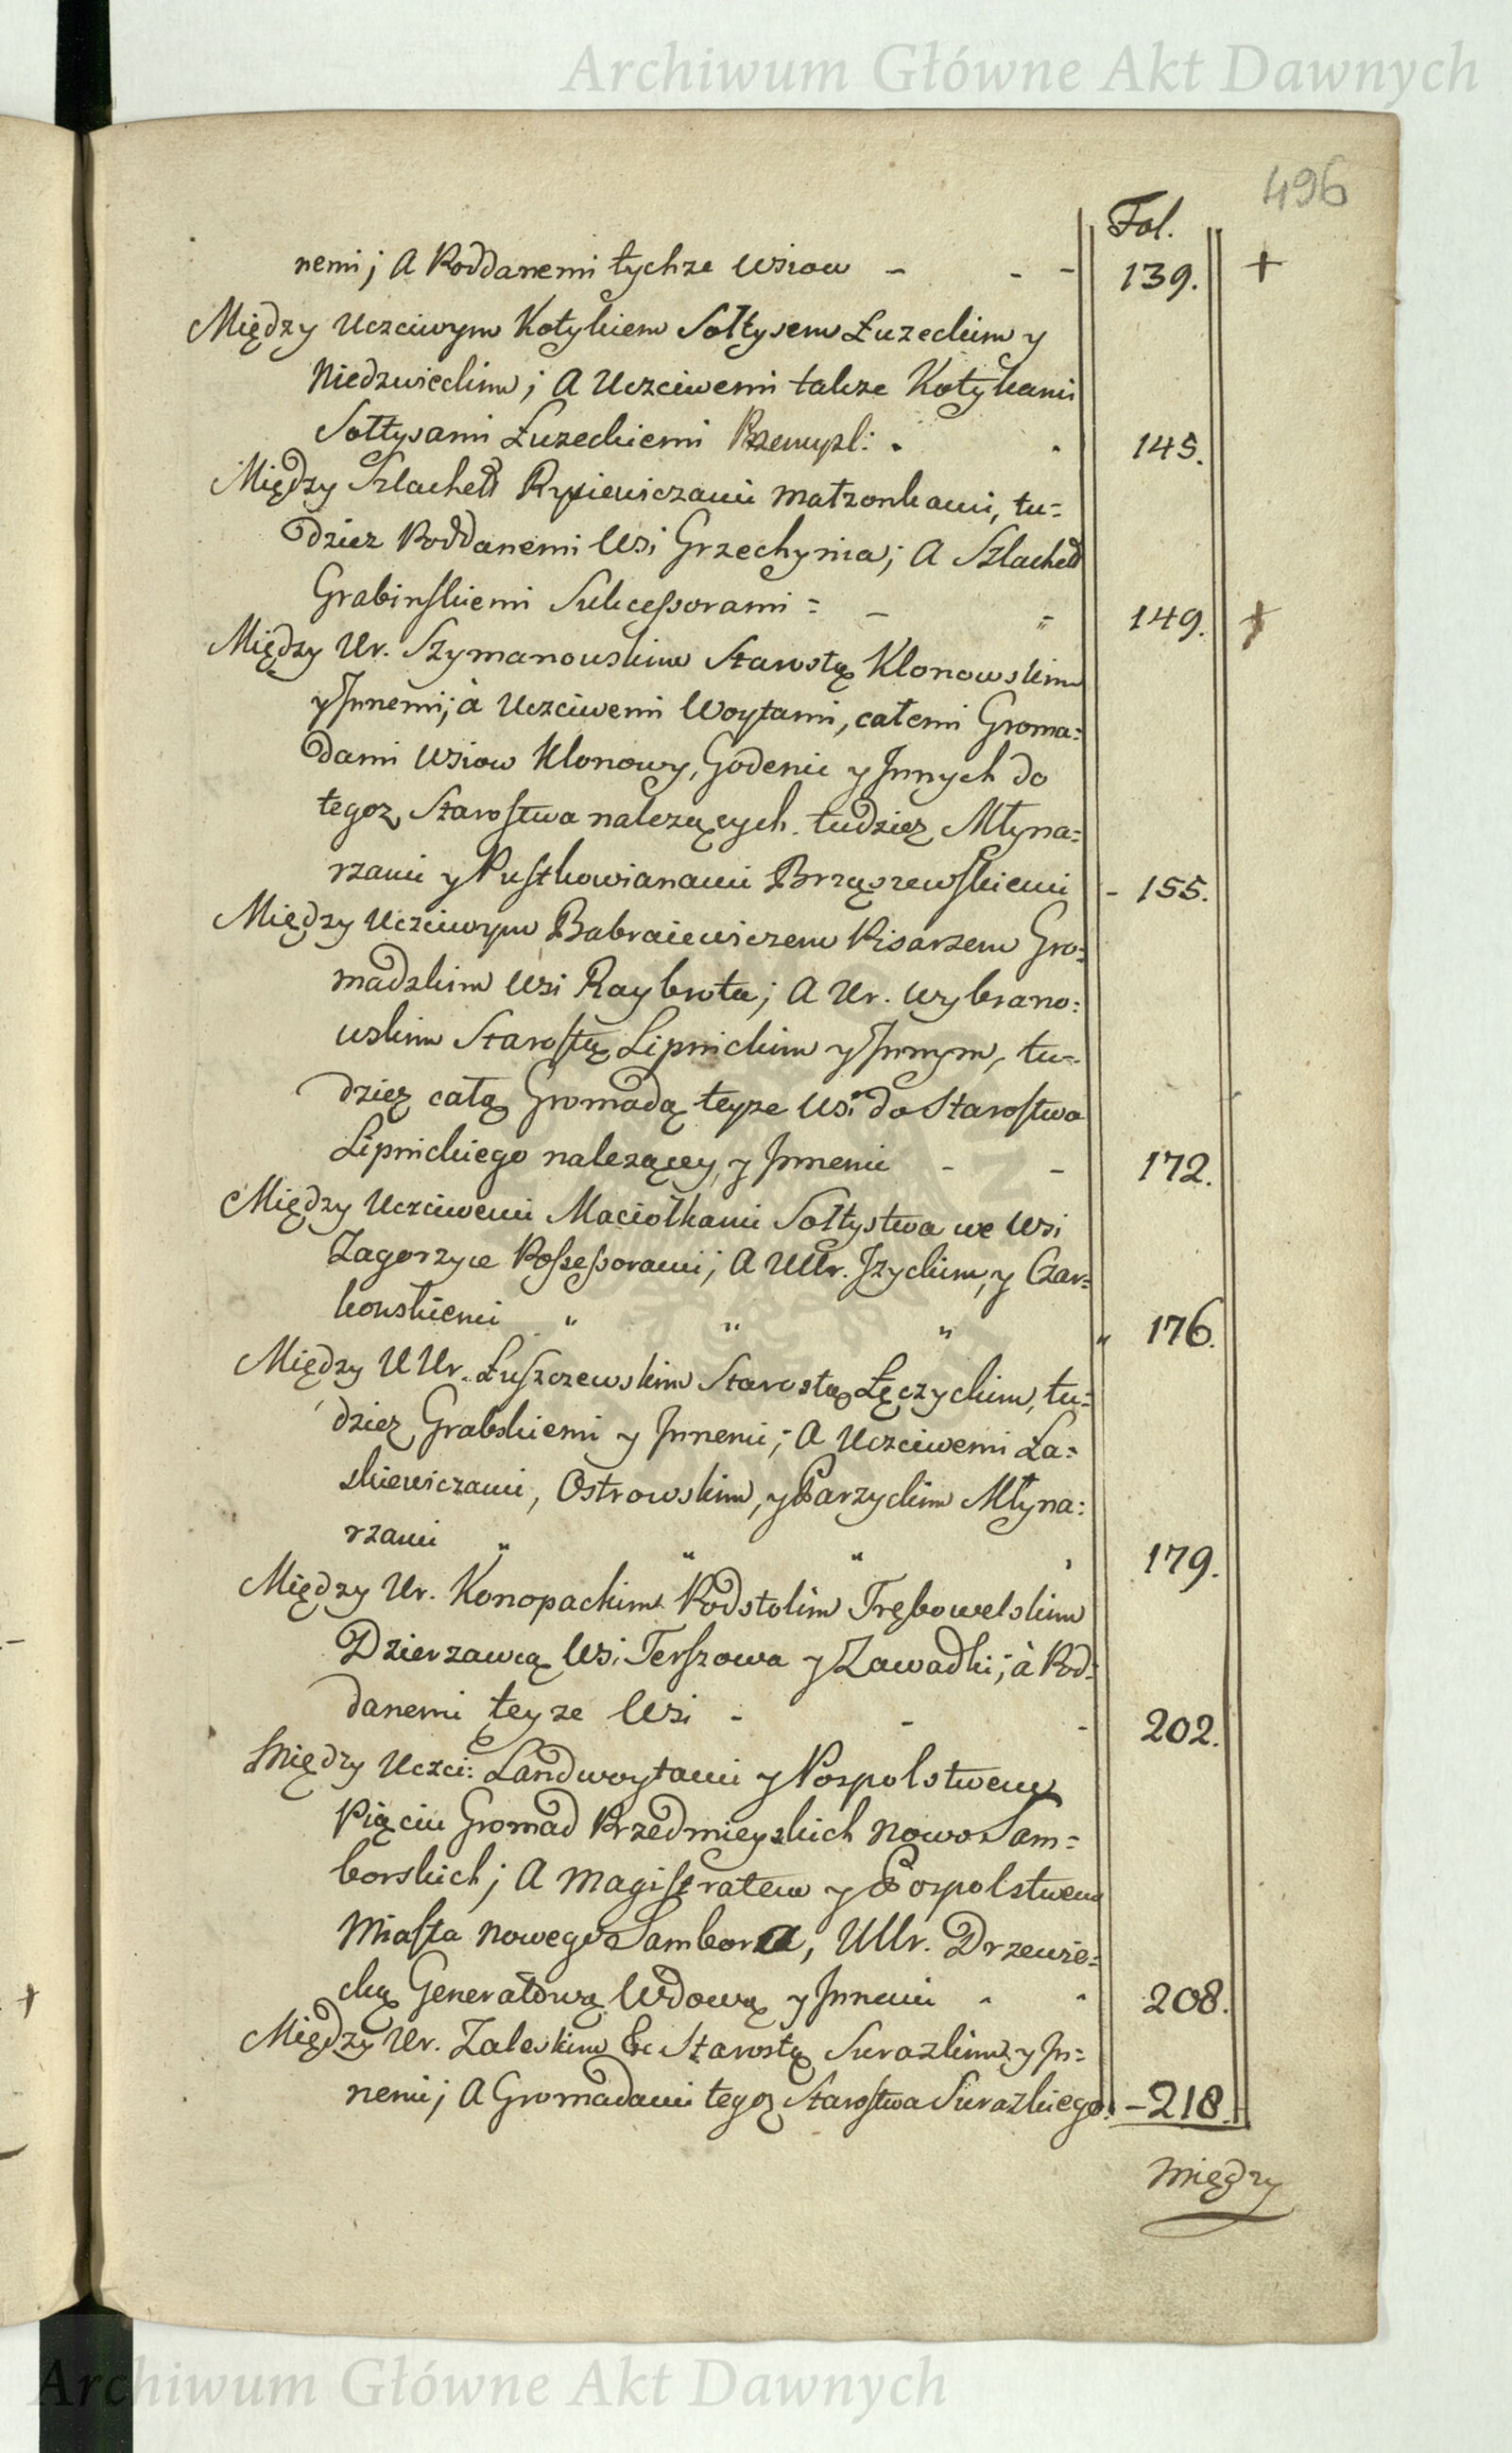 Archiwum Główne Akt Dawnych
496
Fol.
nemi; A Poddanemi tychze Wsiow - - - 139. +
Między Uczciwym Kotykiem Sołtysem Łuzeckim y
Niedzwieckim; A Uczciwemi takze Kotykami
Sołtysami Łuzeckiemi Przemysl: - - 145.
Między Szlachetẽ Rypieewiczami Małzonkami, tu=
dziez Poddanemi Wsi Grzechynia; A Szlachetẽ
Grabinskiemi Sukcessorami = - = 149. +
Między Ur. Szymanowskim Starostą Klonowskim
y Innemi; à Uczciwemi Woytami, całemi Groma=
dami Wsiow Klonowy, Godenic y Innych do
tegoz Starostwa nalezących, tudziez Młyna=
rzami y Pustkowianami Brząszewskiemi - 155.
Między Uczciwym Babraiewiczem Pisarzem Gro=
madzkim Wsi Raybrota; A Ur. Wybrano=
wskim Starostą Lipnickim y Innym, tu=
dziez całą Gromadą teyze Wsi do Starostwa
Lipnickiego nalezącey, y Innemi - - 172.
Między Uczciwemi Maciołkami Sołtystwa we Wsi
Zagorzyce Possessorami; A UUr. Izyckim, y Czar=
kowskiemi " " " " 176.
Między UUr. Łuszczewskim Starostą Łęczyckim, tu=
dziez Grabskiemi y Innemi; A Uczciwemi La=
skiewiczami, Ostrowskim, y Parzyckim Młyna=
rzami " " " " 179.
Między Ur. Konopackim Podstolim Trębowelskim
Dzierzawcą Wsi Terszowa y Zawadki; à Pod=
danemi teyze Wsi - - - 202.
Między Uczci: Landwoytami y Pospolstwem
Pięciu Gromad Przedmieyskich Nowo Sam=
borskich; A Magistratem y Pospolstwem
Miasta Nowego Sambora, UUr. Drzewie=
cką Generałową Wdową y Innemi - - 208.
Między Ur. Zaleskim Ex Starostą Surazkim y In=
nemi; A Gromadami tegoz Starostwa Surazkiego. - 218.
Między
+
Archiwum Główne Akt Dawnych